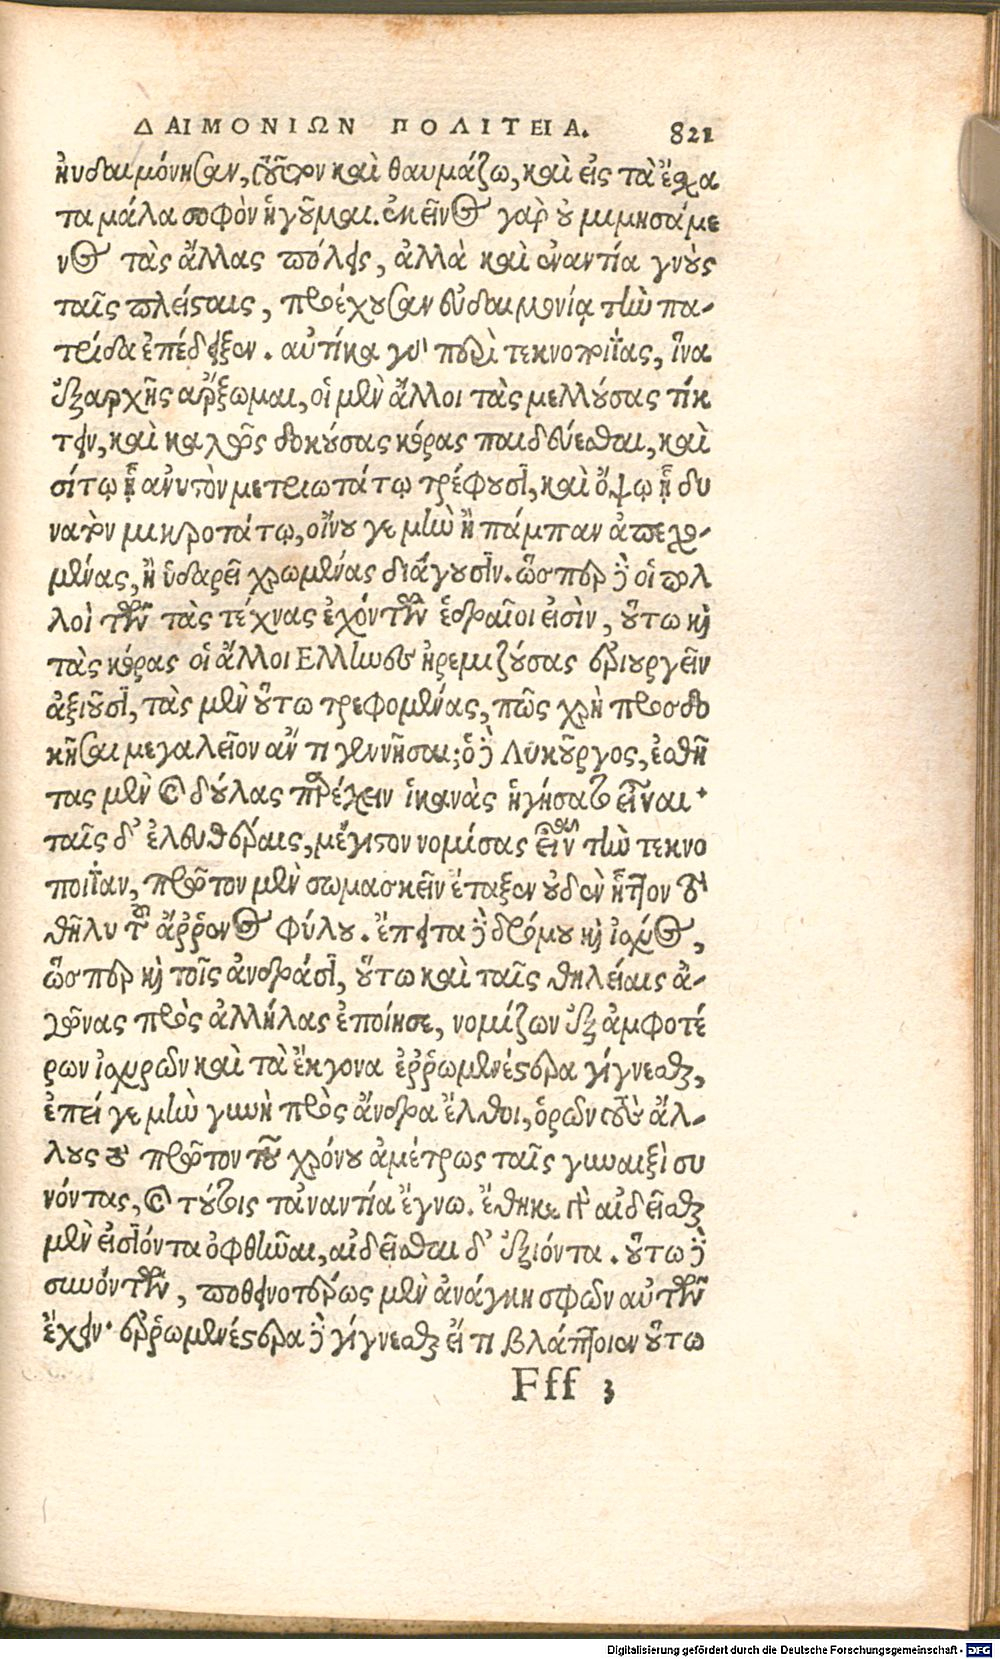 ΔΑΙΜΟΝΙΩΝ ΠΟΛΙΤΕΙΑ. 821
ηὐδαιμόνησαν, τοῦτον καὶ θαυμάζω, καὶ εἰς τὰ ἔσχα
τα μάλα σοφὸν ἡγοῦμαι. ἐκεῖνος γὰρ οὐ μιμησάμε
νος τὰς ἄλλας πόλεις, ἀλλὰ καὶ ἐναντία γνοὺς
ταῖς πλείσταις, προέχουσαν εὐδαιμονίᾳ τὴν πα-
τρίδα ἐπέδειξεν. αὐτίκα γὰρ περὶ τεκνοποιΐας, ἵνα
ἐξ ἀρχῆς ἄρξωμαι, οἱ μὲν ἄλλοι τὰς μελλούσας τίκ
τειν, καὶ καλῶς δοκούσας κόρας παιδεύεσθαι, καὶ
σίτῳ ᾗ ἀνυστὸν μετριωτάτῳ τρέφουσι, καὶ ὄψῳ ᾗ δυ
νατὸν μικροτάτῳ, οἴνου γε μὴν ἢ πάμπαν ἀπεχο-
μένας, ἢ ὑδαρεῖ χρωμένας διάγουσιν. ὥσπερ δὲ οἱ πολ
λοὶ τῶν τὰς τέχνας ἐχόντων ἑδραῖοι εἰσὶν, οὕτω καὶ
τὰς κόρας οἱ ἄλλοι Ἕλληνες ἠρεμιζούσας ἐριουργεῖν
ἀξιοῦσι, τὰς μὲν οὕτω τρεφομένας, πῶς χρὴ προσδο
κῆσαι μεγαλεῖον ἄν τι γεννῆσαι; ὁ δὲ Λυκοῦργος, ἐσθῆ
τας μὲν καὶ δούλας παρέχειν ἱκανὰς ἡγήσατο εἶναι·
ταῖς δ᾽ ἐλευθέραις, μέγιστον νομίσας εἶναι τὴν τεκνο
ποιΐαν, πρῶτον μὲν σωμασκεῖν ἔταξεν οὐδὲν ἧττον τὸ
θῆλυ τοῦ ἄῤῥενος φύλου. ἔπειτα δὲ δρόμου καὶ ἰσχύος,
ὥσπερ καὶ τοῖς ἀνδράσι, οὕτω καὶ ταῖς θηλείαις ἀ-
γῶνας πρὸς ἀλλήλας ἐποίησε, νομίζων ἐξ ἀμφοτέ
ρων ἰσχυρῶν καὶ τὰ ἔκγονα ἐῤῥωμενέστερα γίγνεσθαι,
ἐπεί γε μὴν γυνὴ πρὸς ἄνδρα ἔλθοι, ὁρῶν τοὺς ἄλ-
λους τὸν πρῶτον τοῦ χρόνου ἀμέτρως ταῖς γυναιξὶ συ
νόντας, καὶ τούτοις τἀναντία ἔγνω. ἔθηκε γὰρ αἰδεῖσθαι
μὲν εἰσιόντα ὀφθῆναι, αἰδεῖσθαι δ᾽ ἐξιόντα. οὕτω δὲ
συνόντων, ποθεινοτέρως μὲν ἀνάγκη σφῶν αὐτῶν
ἔχειν· ἐῤῥωμενέστερα δὲ γίγνεσθαι εἴ τι βλάπτοιεν οὕτω
Fff 3
Digitalisierung gefördert durch die Deutsche Forschungsgemeinschaft - DFG